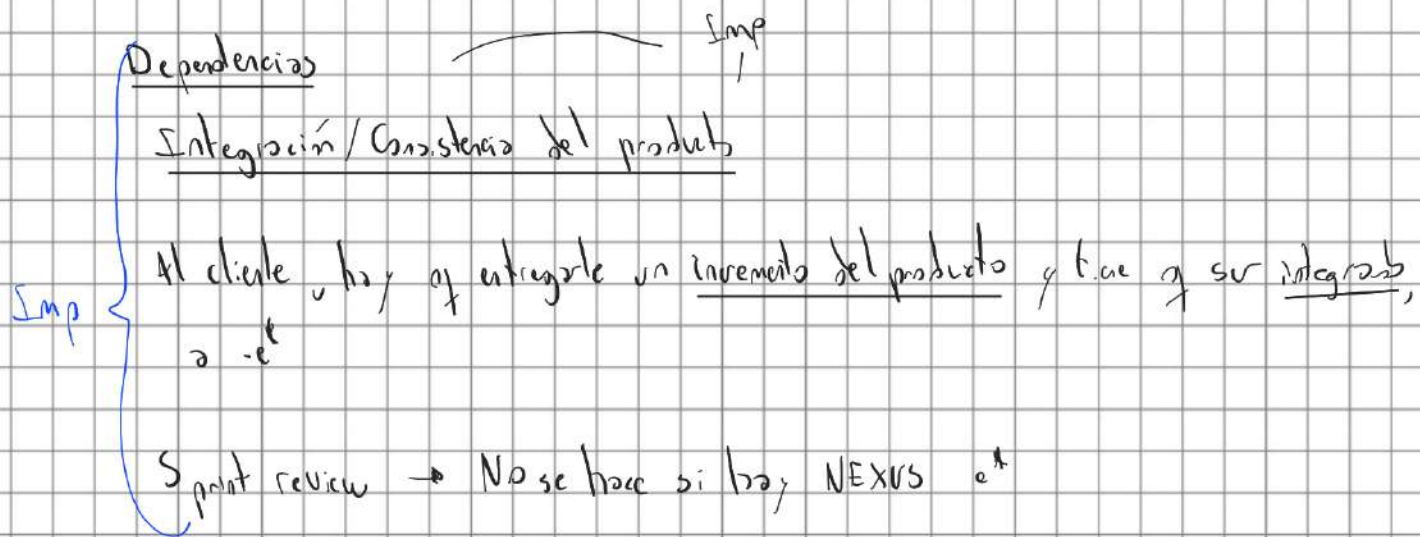 Imp
Dependencias
Integración/Consistencia del producto
Al cliente, hay q entregarle un incremento del producto y tiene q ser integrado,
Imp
Sprint review → No se hace si hay NEXUS